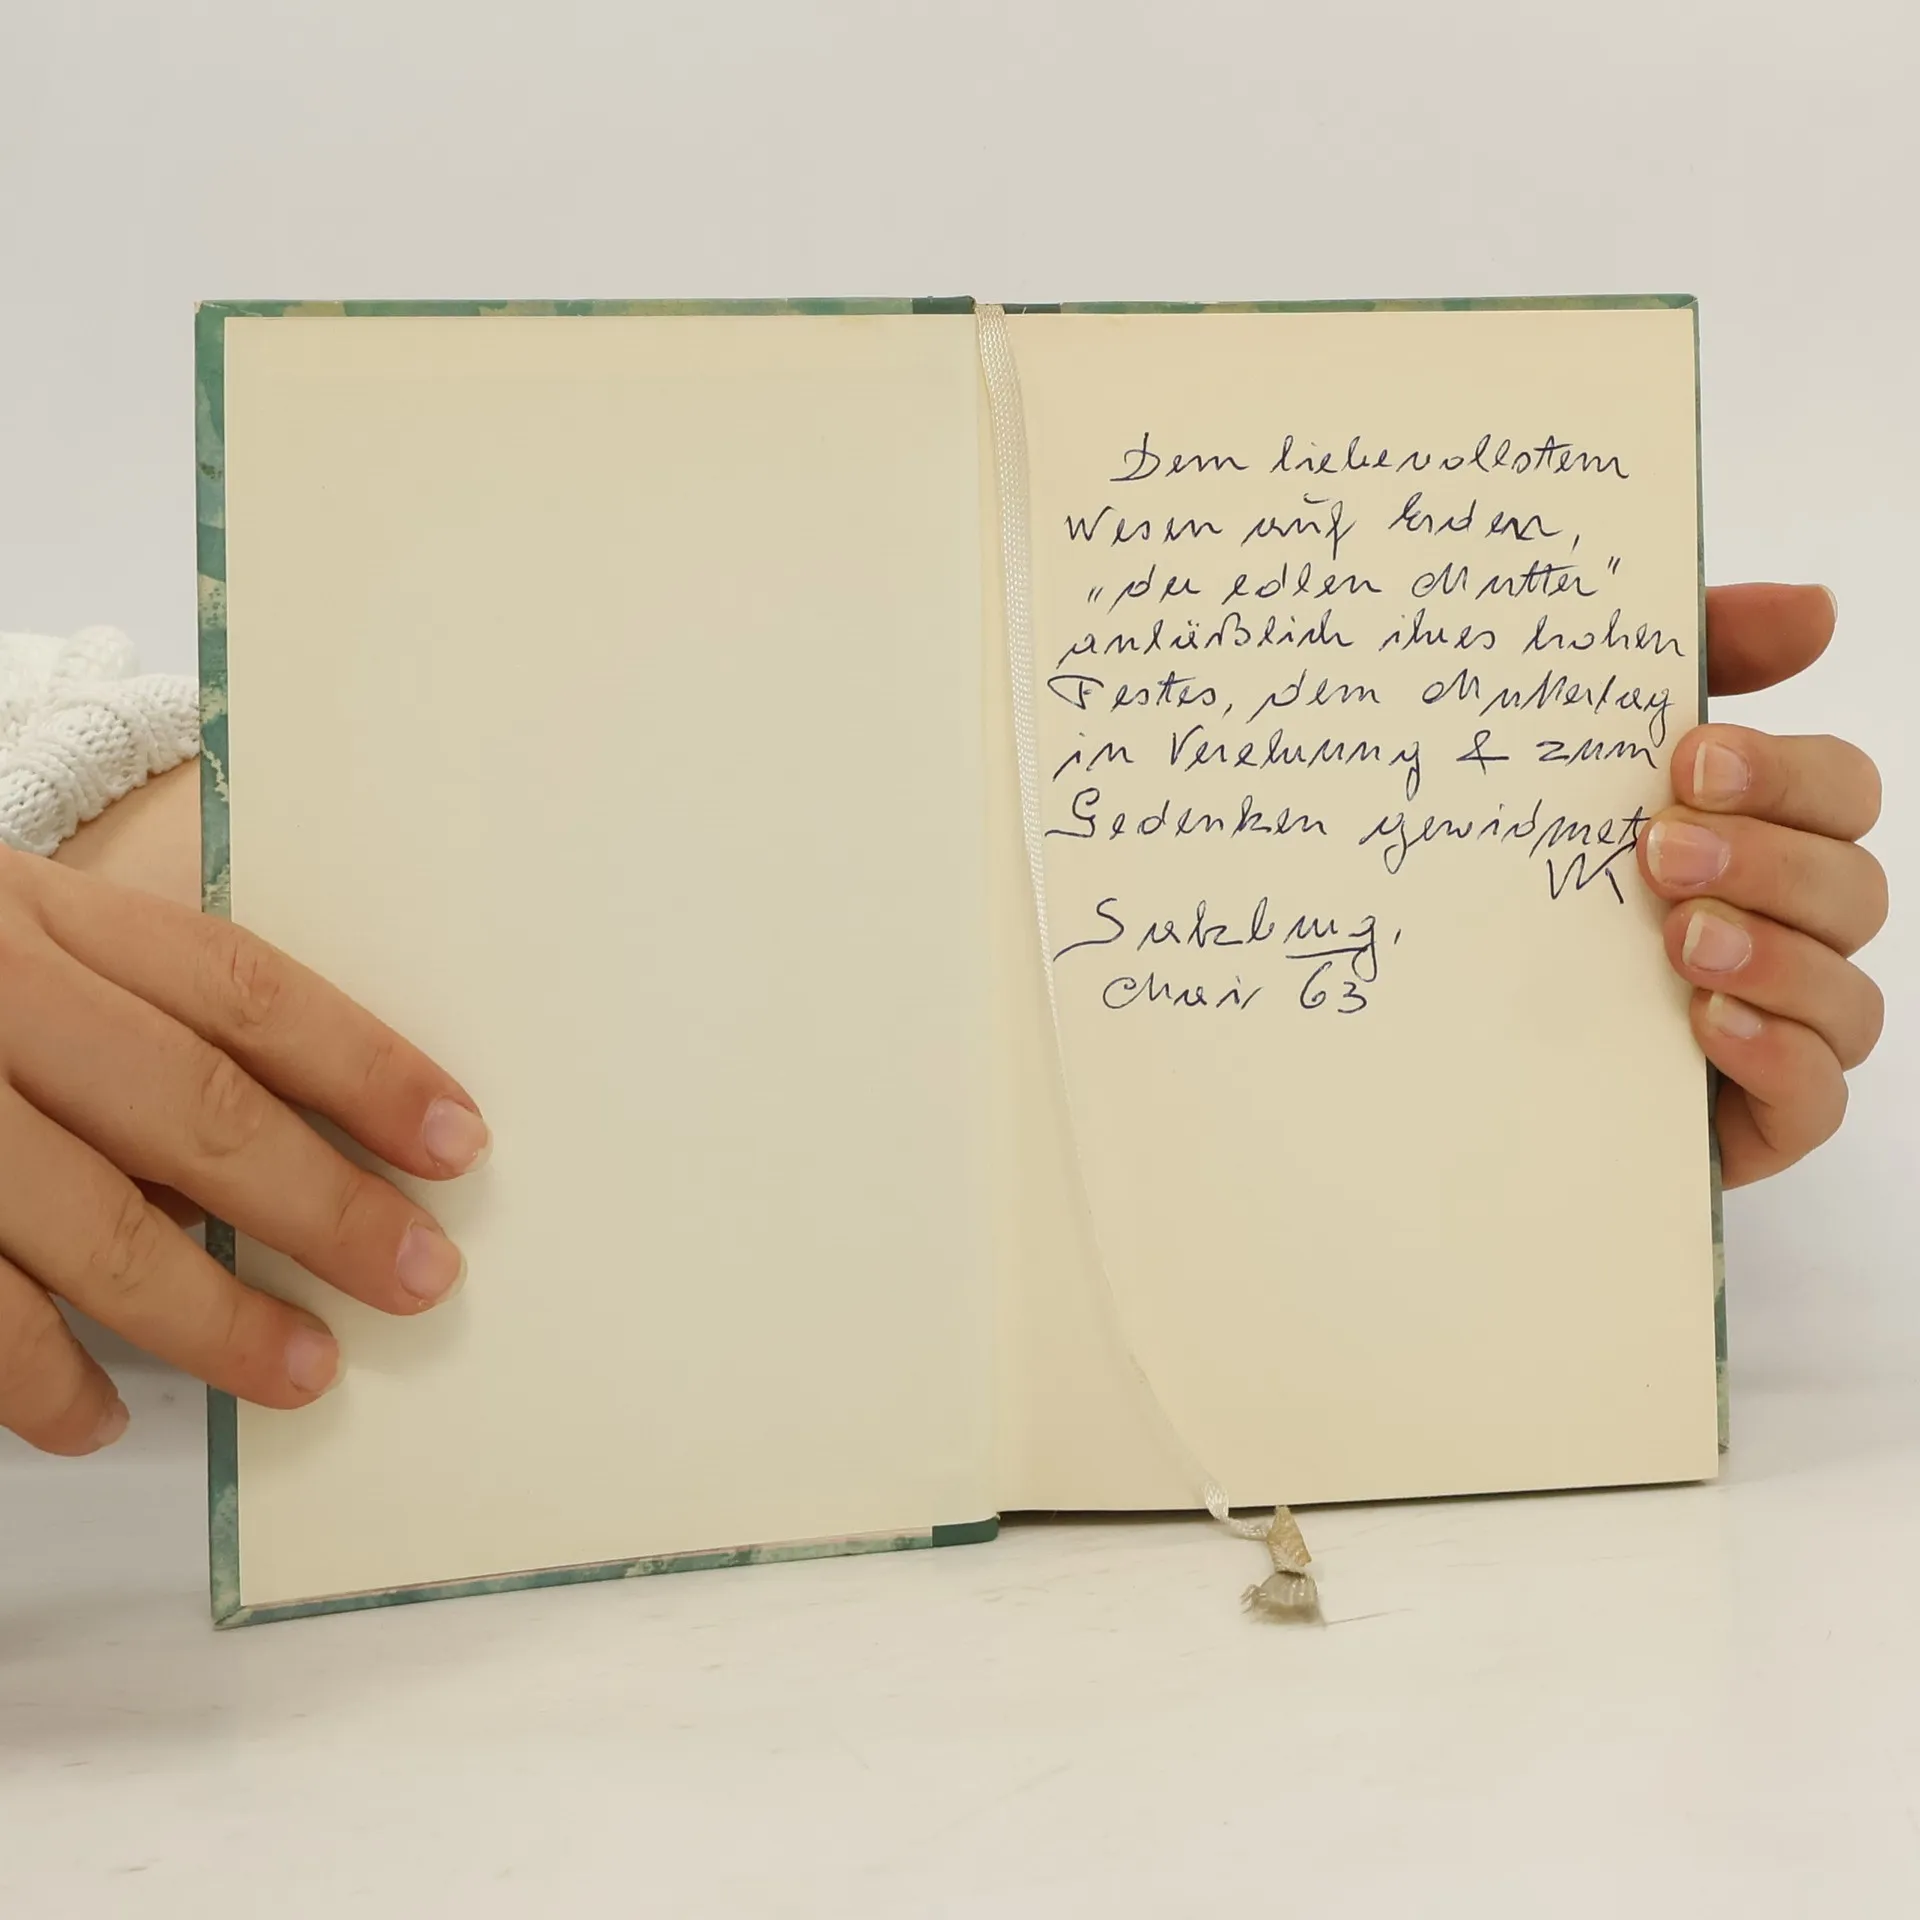 Dem liebevollstem
Wesen auf Erden,
"der edlen Mutter"
anläßlich ihres hohen
Festes, dem Muttertag
in Verehrung & zum
Gedenken gewidmet
Salzburg,
Mai 63